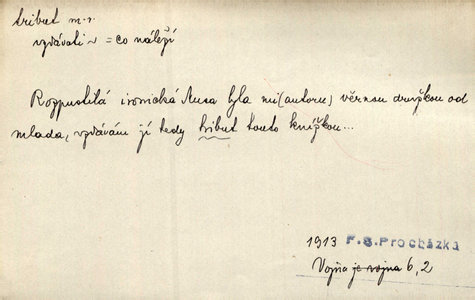 tribut m. r.
vzdávati ~ = co náleží
Rozpustilá ironická Musa byla mi (autoru) věrnou družkou od
mlada, vzdávám jí tedy tribut touto knížkou...
1913 F. S. Procházka
Vojna je vojna 6, 2